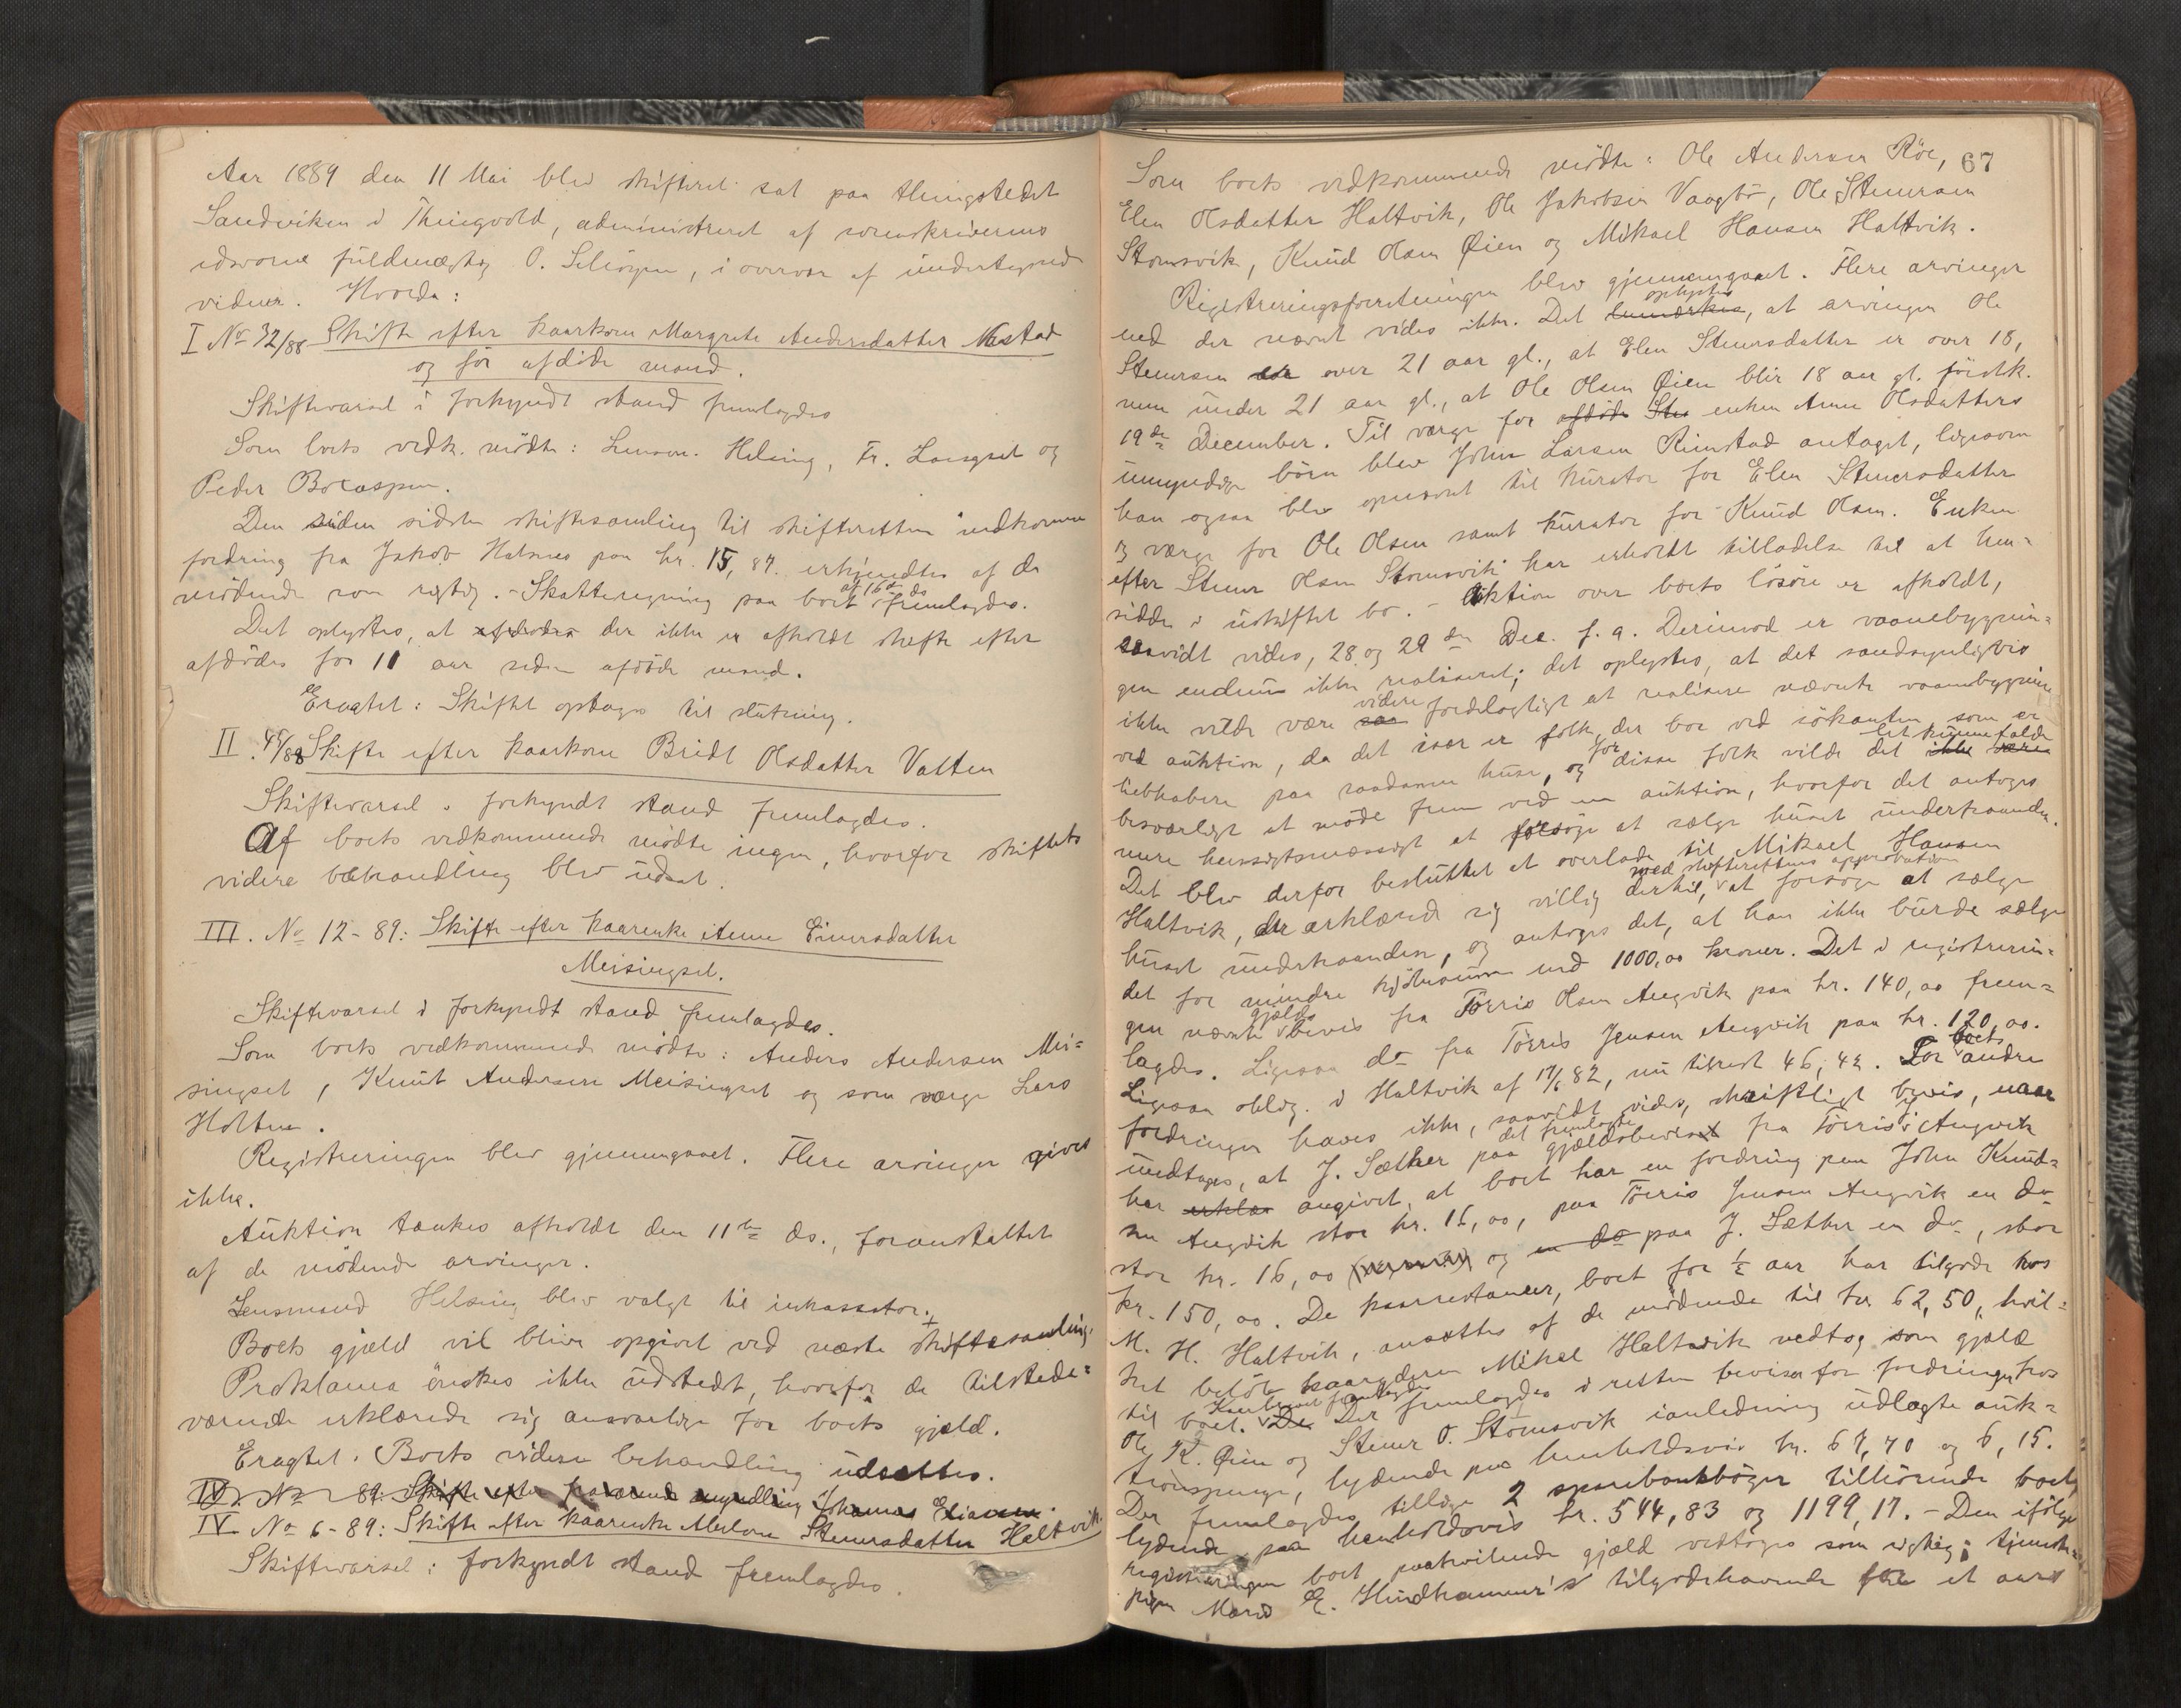 Aar 1889 den 11 Mai blev skifteret sat paa thingstedet
Sandviken i Thingvold, administreret af sorenskriverens
edsvorne fuldmægtig O. , i overvær af undertegnede
vidner. Hvorda:
I No 32/88 Skifte efter kaarkone Margrete Andersdatter
og før afdøde mand.
Skiftevarsel i forkyndt stand fremlagdes
Som boets vedk. mødte: Lensm. Helsing, Fr. Langset og
Peder
Den siden sidste skiftesamling til skifteretten indkomne
fordring fra Jakob Halsnes paa kr. 15,87 erkjendtes af de
mødende som rigtig. - Skatteregning paa boet af 16de ds fremlagdes.
Det oplystes, at afdødes der ikke er afholdt skifte efter
afdødes for 11 aar siden afdøde mand.
Eragtet: Skiftet optages til slutning.
II. 45/88 Skifte efter kaarkone Bridt Olsdatter Vatten
Skiftevarsel i forkyndt stand fremlagdes.
Af boets vedkommende mødte ingen, hvorfor skiftets
videre behandling blev udsat.
III. No 12-89: Skifte efter kaarenke Anne Einersdatter
Meisingset.
Skiftevarsel i forkyndt stand fremlagdes.
Som boets vedkommende mødte: Anders Andersen Mei=
singset, Knut Andersen Meisingset og som værge Lars
Holten.
Registreringen blev gjennemgaaet. Flere arvinger gives
ikke.
Auktion tænkes afholdt den 11te ds., foranstaltet
af de mødende arvinger.
Lensmand Helsing blev valgt til inkassator. +
Boets gjæld vil blive opgivet ved næste skiftesamling.
Proklama ønskes ikke udstedt, hvorfor de tilstede=
værende erklærede sig ansvarlige for boets gjæld.
Eragtet. Boets videre behandling udsættes.
IV. No 89: Skifte efter fraværende myndling Johannes Eliassen
IV No 6-89: Skifte efter kaarenke Stenersdatter Haltvik.
Skiftevarsel i forkyndt stand fremlagdes.
67
Som boets vedkommende mødte: Ole Andersen Röe,
Elen Olsdatter Haltvik, Ole Jakobsen Vaagbø, Ole Stenersen
Stomsvik, Knud Olsen Øien og Mikael Hansen Haltvik.
Registreringsforretningen blev gjennemgaaet. Flere arvinger
end der nævnt vides ikke. Det bemærkes oplystes, at arvingen Ole
Stenersen er over 21 aar gl., at Elen Stenersdatter er over 18,
men under 21 aar gl., at Ole Olsen Øien blir 18 aar gl. förstk.
19de December. Til værge for afdøde Ste enken Anne Olsdatters
umyndige børn blev John Larsen Rimstad antaget, ligesom
han ogsaa blev opnævnt til kurator for Elen Stenersdatter
og værge for Ole Olsen samt kurator for Knud Olsen. Enken
efter Stener Olsen Stomsvik har erholdt tilladelse til at hen=
sidde i uskiftet bo. - Auktion over boets løsøre er afholdt,
saavidt vides, 28 og 29de Dec. f. a. Derimod er vaanebygnin=
gen endnu ikke realiseret; det oplystes, at det sandsynligvis
ikke vilde være saa videre fordelagtigt at realisere nævnte vaanebygning
ved auktion, da det især er folk, der bor ved søkanten som er
liebhabere paa saadanne huse, og for disse folk vilde det ikke være let kunne falde
besværligt at møde frem ved en auktion, hvorfor det antoges
mere hensigtsmæssigt at forsøge at sælge huset underhaanden.
Det blev derfor besluttet at overlade til Mikael Hansen
Haltvik, der erklærede sig villig dertil, med skifterettens approbation at forsøge at sælge
huset underhaanden, og antoges det, at han ikke burde sælge
det for mindre kjøbesum end 1000,00 kroner. Det i registrerin=
gen nævnte gjælds bevis fra Törris Olsen Angvik paa kr. 140,00 frem=
lagdes. Ligesaa do fra Törris Jensen Angvik paa kr. 120,00.
Ligesaa oblig. i Haltvik af 17/6 82, nu tilrest 46,42. For boets andre
fordringer haves ikke, saavidt vides, skriftligt bevis, naar
undtages, at J. Sæther paa det fremlagte gjældsbeviset fra Törris J. Angvik
har erklær angivet, at boet har en fordring paa John Knud=
sen Angvik stor kr. 16,00, paa Törris Jensen Angvik en do
stor kr. 16,00 og en do paa J. Sæther en do, stor
kr. 150,00. De kaarrestancer, boet for 1/2 aar har tilgode hos
M. H. Haltvik, ansattes af de mødende til kr. 62,50, hvil=
ket beløb kaaryderen Mikael Haltvik vedtog som gjæld
til boet. De Der fremlagdes i retten beviser for fordringer hos
Ole K. Øien og Stener O. Stomsvik i anledning udlagte auk=
tionspenge, lydende paa henholdsvis kr. 67,70 og 6,15.
Der fremlagdes tillige 2 sparebankbøger tilhørende boet
lydende paa henholdsvis kr. 544,83 og 1199,17. - Den ifølge
registreringen boet paahvilende gjæld vedtoges som rigtig; tjeneste=
pigen Marit E. Hindhammer's tilgodehavende for et aars